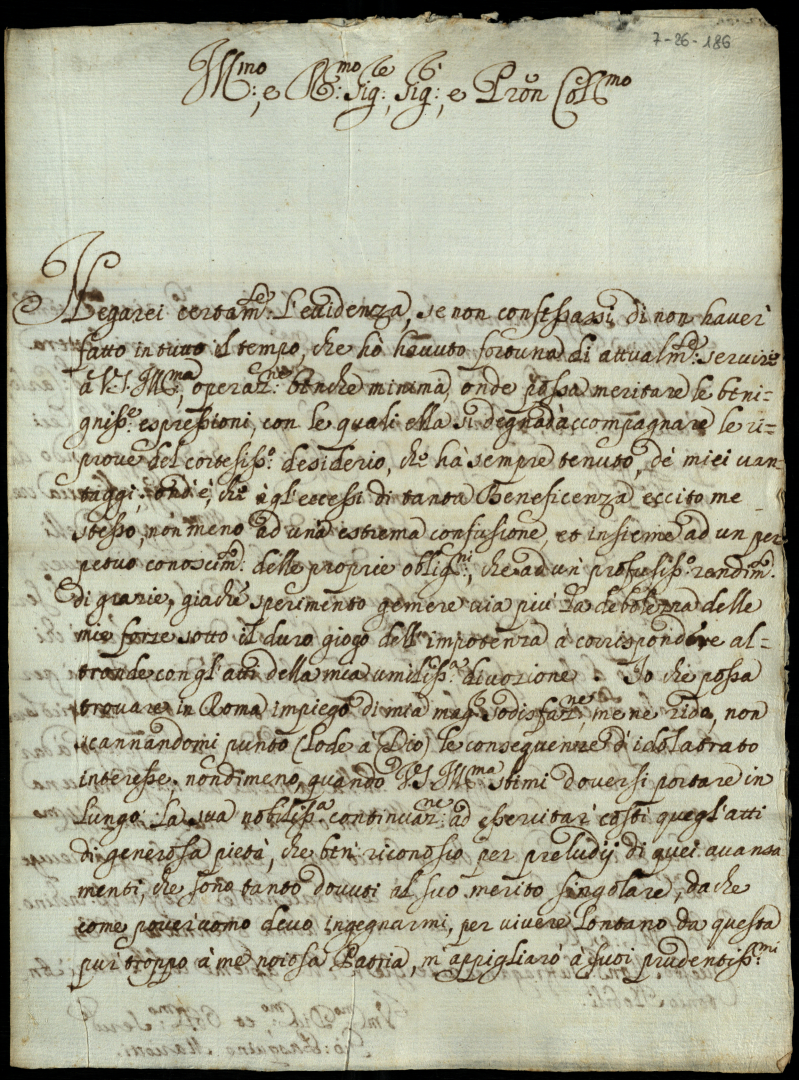 7-26-186
Ill.mo, e R.mo Sig.re, Sig.r, e Pron Coll.mo
Negarei certam.te l'evidenza, se non confessassi, di non haver
fatto in tutto il tempo, che hò havuto fortuna di attualm.te servire
à V.S. Ill.ma, operaz.ne benche minima, onde possa meritare le beni-
gniss.e espressioni, con le quali ella si degna d'accompagnare le ri-
prove del cortesiss.o desiderio, che hà sempre tenuto, de' miei van-
taggi; ond'è, che à gl'eccessi di tanta Beneficenza eccito me
stesso, non meno ad una estrema confusione, et insieme ad un per
petuo conoscim.to delle proprie oblig.ni, che ad un profusiss.o rendim.to
di grazie, giache sperimento gemere via più la debolezza delle
mie forze sotto il duro giogo dell'impotenza à corrispondere al-
tronde con gl'atti della mia umiliss.a divozione. Io che possa
trovare in Roma impiego di mia mag.r sodisfaz.ne, me ne rido, non
scannandomi punto (Lode à Dio) le conseguenze d'idolatrato
interesse; nondimeno, quando V.S. Ill.ma stimi doversi portare in
lungo la sua nobiliss.a continuaz.ne ad esservitar costì quegl'atti
di generosa pietà, che ben riconosco per preludij di quei avanza
menti, che sono tanto dovuti al suo merito singolare, da che
come pover'uomo devo ingegnarmi, per vivere lontano da questa
pur troppo à me noiosa Patria, m'appigliarò à suoi prudentiss.mi